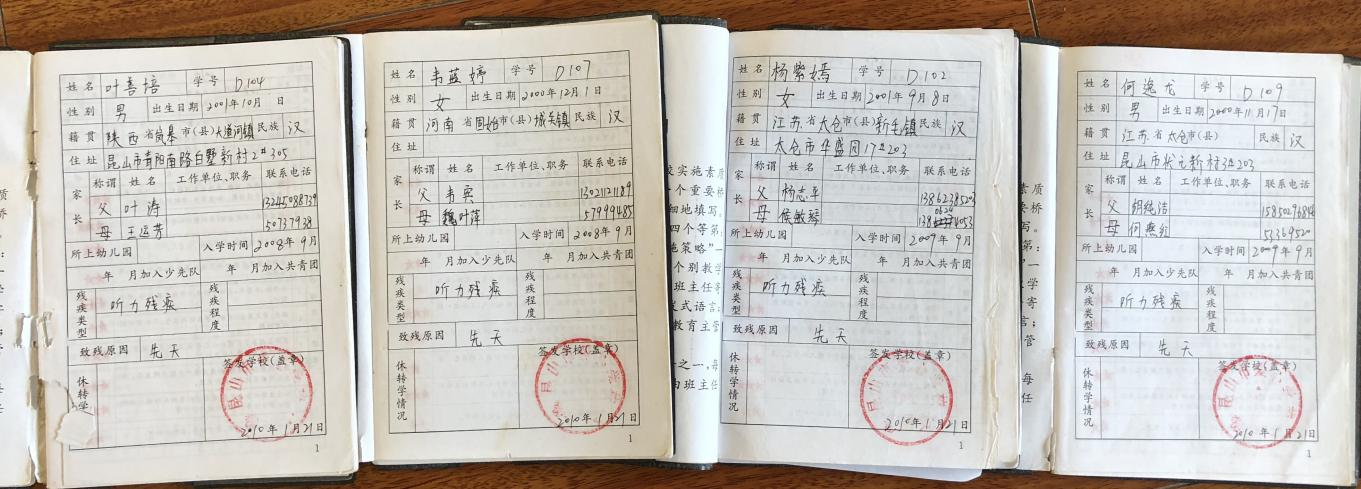 姓名 叶善培 学号 D104
性别 男 出生日期 2001年10月 日
籍贯 陕西省岚皋市(县)大道河镇 民族 汉
住址 昆山市青阳南路白墅新村2#305
家长 称谓 姓名 工作单位、职务 联系电话
父 叶涛 13245088739
母 王运芳 50737938
所上幼儿园 入学时间 2008年9月
年 月加入少先队 年 月加入共青团
残疾类型 听力残疾 残疾程度
致残原因 先天
休转学 签发学校(盖章)
昆山市
2010年1月21日
1
姓名 韦蓝婷 学号 D107
性别 女 出生日期 2000年12月1日
籍贯 河南省固始市(县)城关镇 民族 汉
住址
家长 称谓 姓名 工作单位、职务 联系电话
父 韦实 13021121189
母 魏叶萍 57999485
所上幼儿园 入学时间 2008年9月
年 月加入少先队 年 月加入共青团
残疾类型 听力残疾 残疾程度
致残原因 先天
休转学情况 签发学校(盖章)
昆山
2010年1月21日
1
校实施素质
个重要桥
细地填写。
四个等第:
施策略”一
个别教学
班主任寄
式语言;
教育主管
之一,每
由班主任
姓名 杨紫嫣 学号 D102
性别 女 出生日期 2001年9月8日
籍贯 江苏省太仓市(县)新毛镇 民族 汉
住址 太仓市华盛园17#203
家长 称谓 姓名 工作单位、职务 联系电话
父 杨志平 13862385203
母 侯敏琴
所上幼儿园 入学时间 2009年9月
年 月加入少先队 年 月加入共青团
残疾类型 听力残疾 残疾程度
致残原因 先天
休转学情况 签发学校(盖章)
昆山市
2010年1月21日
1
素质
要桥
写。
第:
”一
教学
寄
言;
管
每
任
姓名 何逸龙 学号 D109
性别 男 出生日期 2000年11月17日
籍贯 江苏省太仓市(县) 民族 汉
住址 昆山市状元新村3#203
家长 称谓 姓名 工作单位、职务 联系电话
父 胡纯洁
母 何燕红
所上幼儿园 入学时间 2009年9月
年 月加入少先队 年 月加入共青团
残疾类型 听力残疾 残疾程度
致残原因 先天
休转学情况 签发学校(盖章)
昆山
2010年1月21日
1